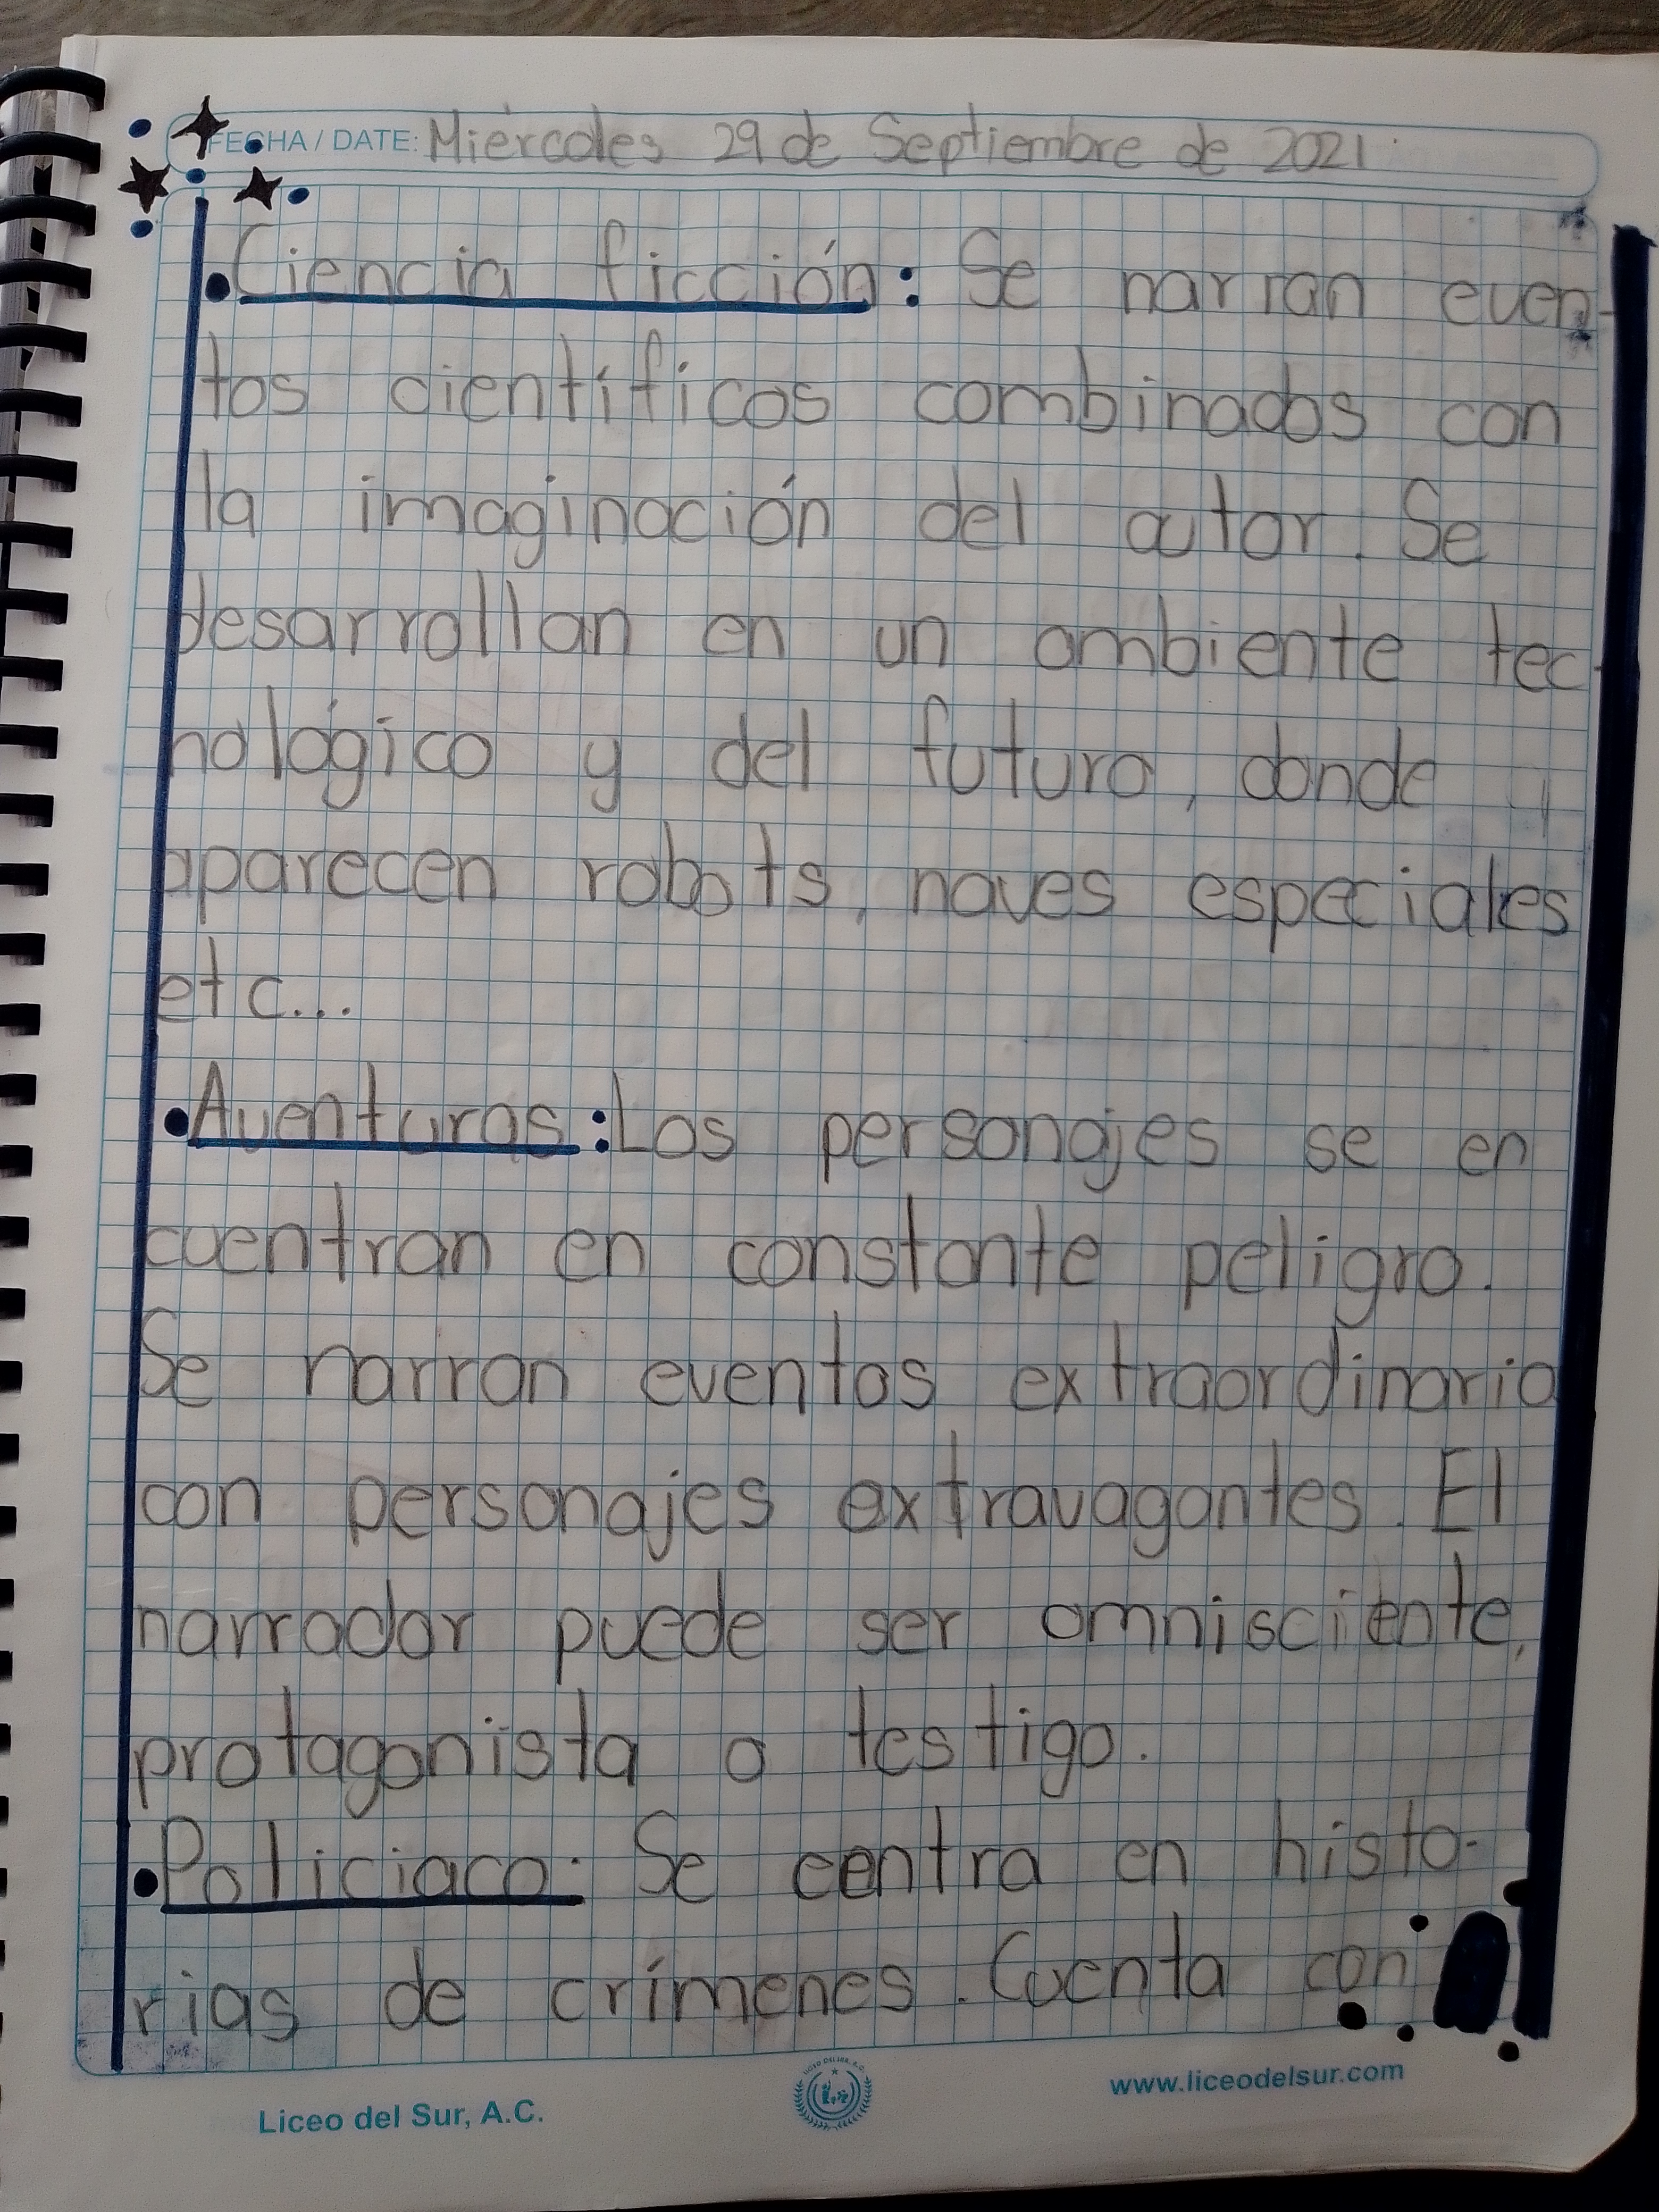 FECHA / DATE: Miércoles 29 de Septiembre de 2021
•Ciencia ficción: Se narran even-
tos científicos combinados con
la imaginación del autor. Se
desarrollan en un ambiente tec-
nológico y del futuro, donde
aparecen robots, naves especiales
etc...
•Aventuras: Los personajes se en
cuentran en constante peligro.
Se narran eventos extraordinario
con personajes extravagantes. El
narrador puede ser omnisciiente,
protagonista o testigo.
•Policiaco: Se centra en histo-
rias de crímenes. Cuenta con
Liceo del Sur, A.C.
www.liceodelsur.com